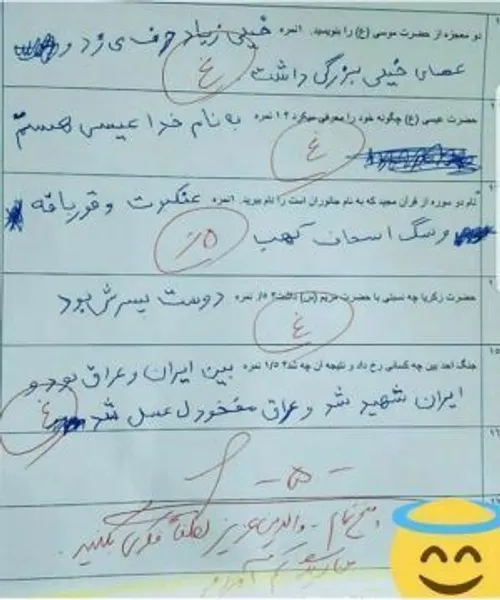 دو معجزه از حضرت موسی (ع) را بنویسید. ۱نمره خیلی زیاد حرف می زد و
عصای خیلی بزرگی داشت غ
حضرت عیسی (ع) چگونه خود را معرفی میکرد؟ ۱ نمره به نام خدا عیسی هستم
غ
نام دو سوره از قرآن مجید که به نام جانوران است را نام ببرید. ۱نمره عنکبوت و قورباقه
و سگ اسحاب کهب ۵/.
حضرت زکریا چه نسبتی با حضرت مریم (س) داشت؟ ۰/۵ نمره دوست پسرش بود
غ
جنگ احد بین چه کسانی رخ داد و نتیجه آن چه شد؟ ۱/۵ نمره بین ایران و عراق بود و
ایران شهید شد و عراق مفخودل عسل شد غ
- ۵ -
پنج تمام - والدین عزیز لطفاً فکری بکنید.